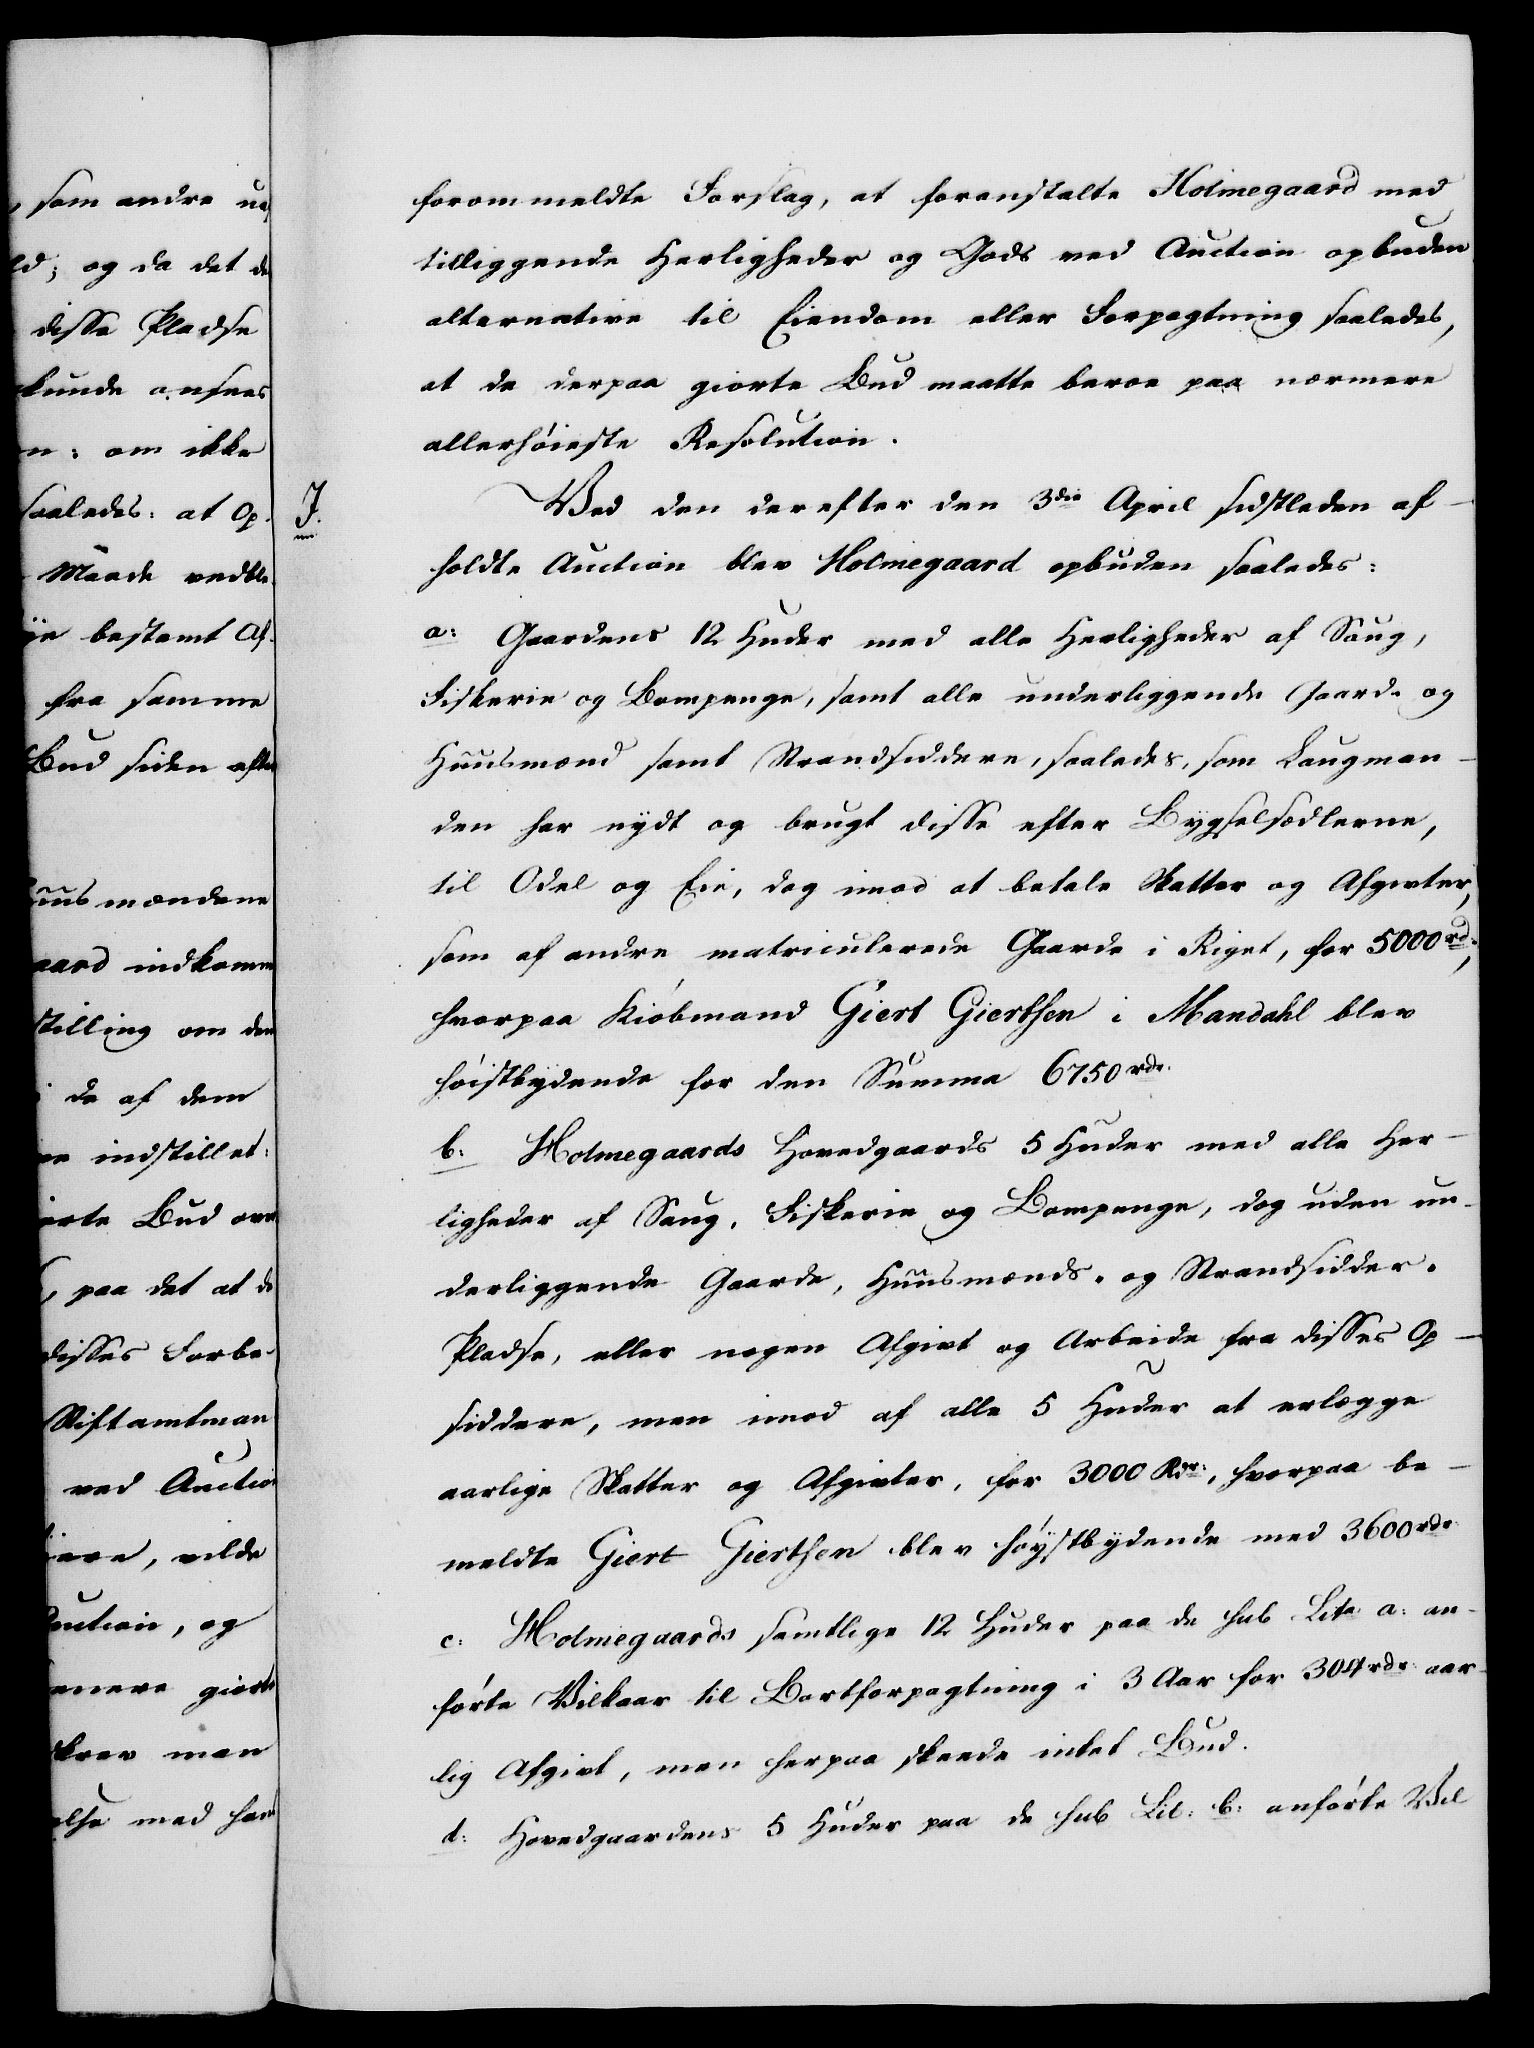 , som andre ua
ld; og da det de
disse Pladse
kunde ansees
n: om ikke
saaledes: at Op-
Maade vedble
ÿe bestemt Af-
fra samme
Bud siden efte
Huusmændene
aard indkomm
stilling om den
de af dem
re indstillet:
iorte Bud ove
, paa det at de
disses Forbe-
Stiftamtman
ved Auction
ivere, vilde
Caution, og
enere giorte
skrev man
else med han
forommeldte Forslag, at foranstalte Holmegaard med
tilliggende Herligheder og Gods ved Auction opbuden
alternative til Eiendom eller Forpagtning saaledes,
at de derpaa giorte Bud maatte beroe paa nærmere
allerhöieste Resolution.
J.
Ved den derefter den 3die April sidstleden af-
holdte Auction blev Holmegaard opbuden saaledes:
a: Gaardens 12 Huder med alle Herligheder af Saug,
Fiskerie og Bompenge, samt alle underliggende Gaard- og
Huusmænd samt Strandsiddere, saaledes, som Laugman-
den har nydt og brugt disse efter Bygselsedlerne,
til Odel og Eie, dog imod at betale Skatter og Afgivter,
som af andre matriculerede Gaarde i Riget, for 5000 rd.,
hvorpaa Kiöbmand Giert Gierthsen i Mandahl blev
höistbydende for den Summa 6750 rdr.
b: Holmegaards Hovedgaards 5 Huder med alle Her-
ligheder af Saug, Fiskerie og Bompenge, dog uden un-
derliggende Gaarde, Huusmænds- og Strandsidder-
Pladse, eller nogen Afgivt og Arbeide fra disses Op-
siddere, men imod af alle 5 Huder at erlægge
aarlige Skatter og Afgivter, for 3000 Rdr:, hvorpaa be-
meldte Giert Gierthsen blev höÿstbydende med 3600 rdr.
c: Holmegaards samtlige 12 Huder paa de sub Lita a: an-
förte Vilkaar til Bortforpagtning i 3 Aar for 304 rdr: aar-
lig Afgivt, men herpaa skeede intet Bud.
d: Hovedgaardens 5 Huder paa de sub Lit: b: anförte Vil